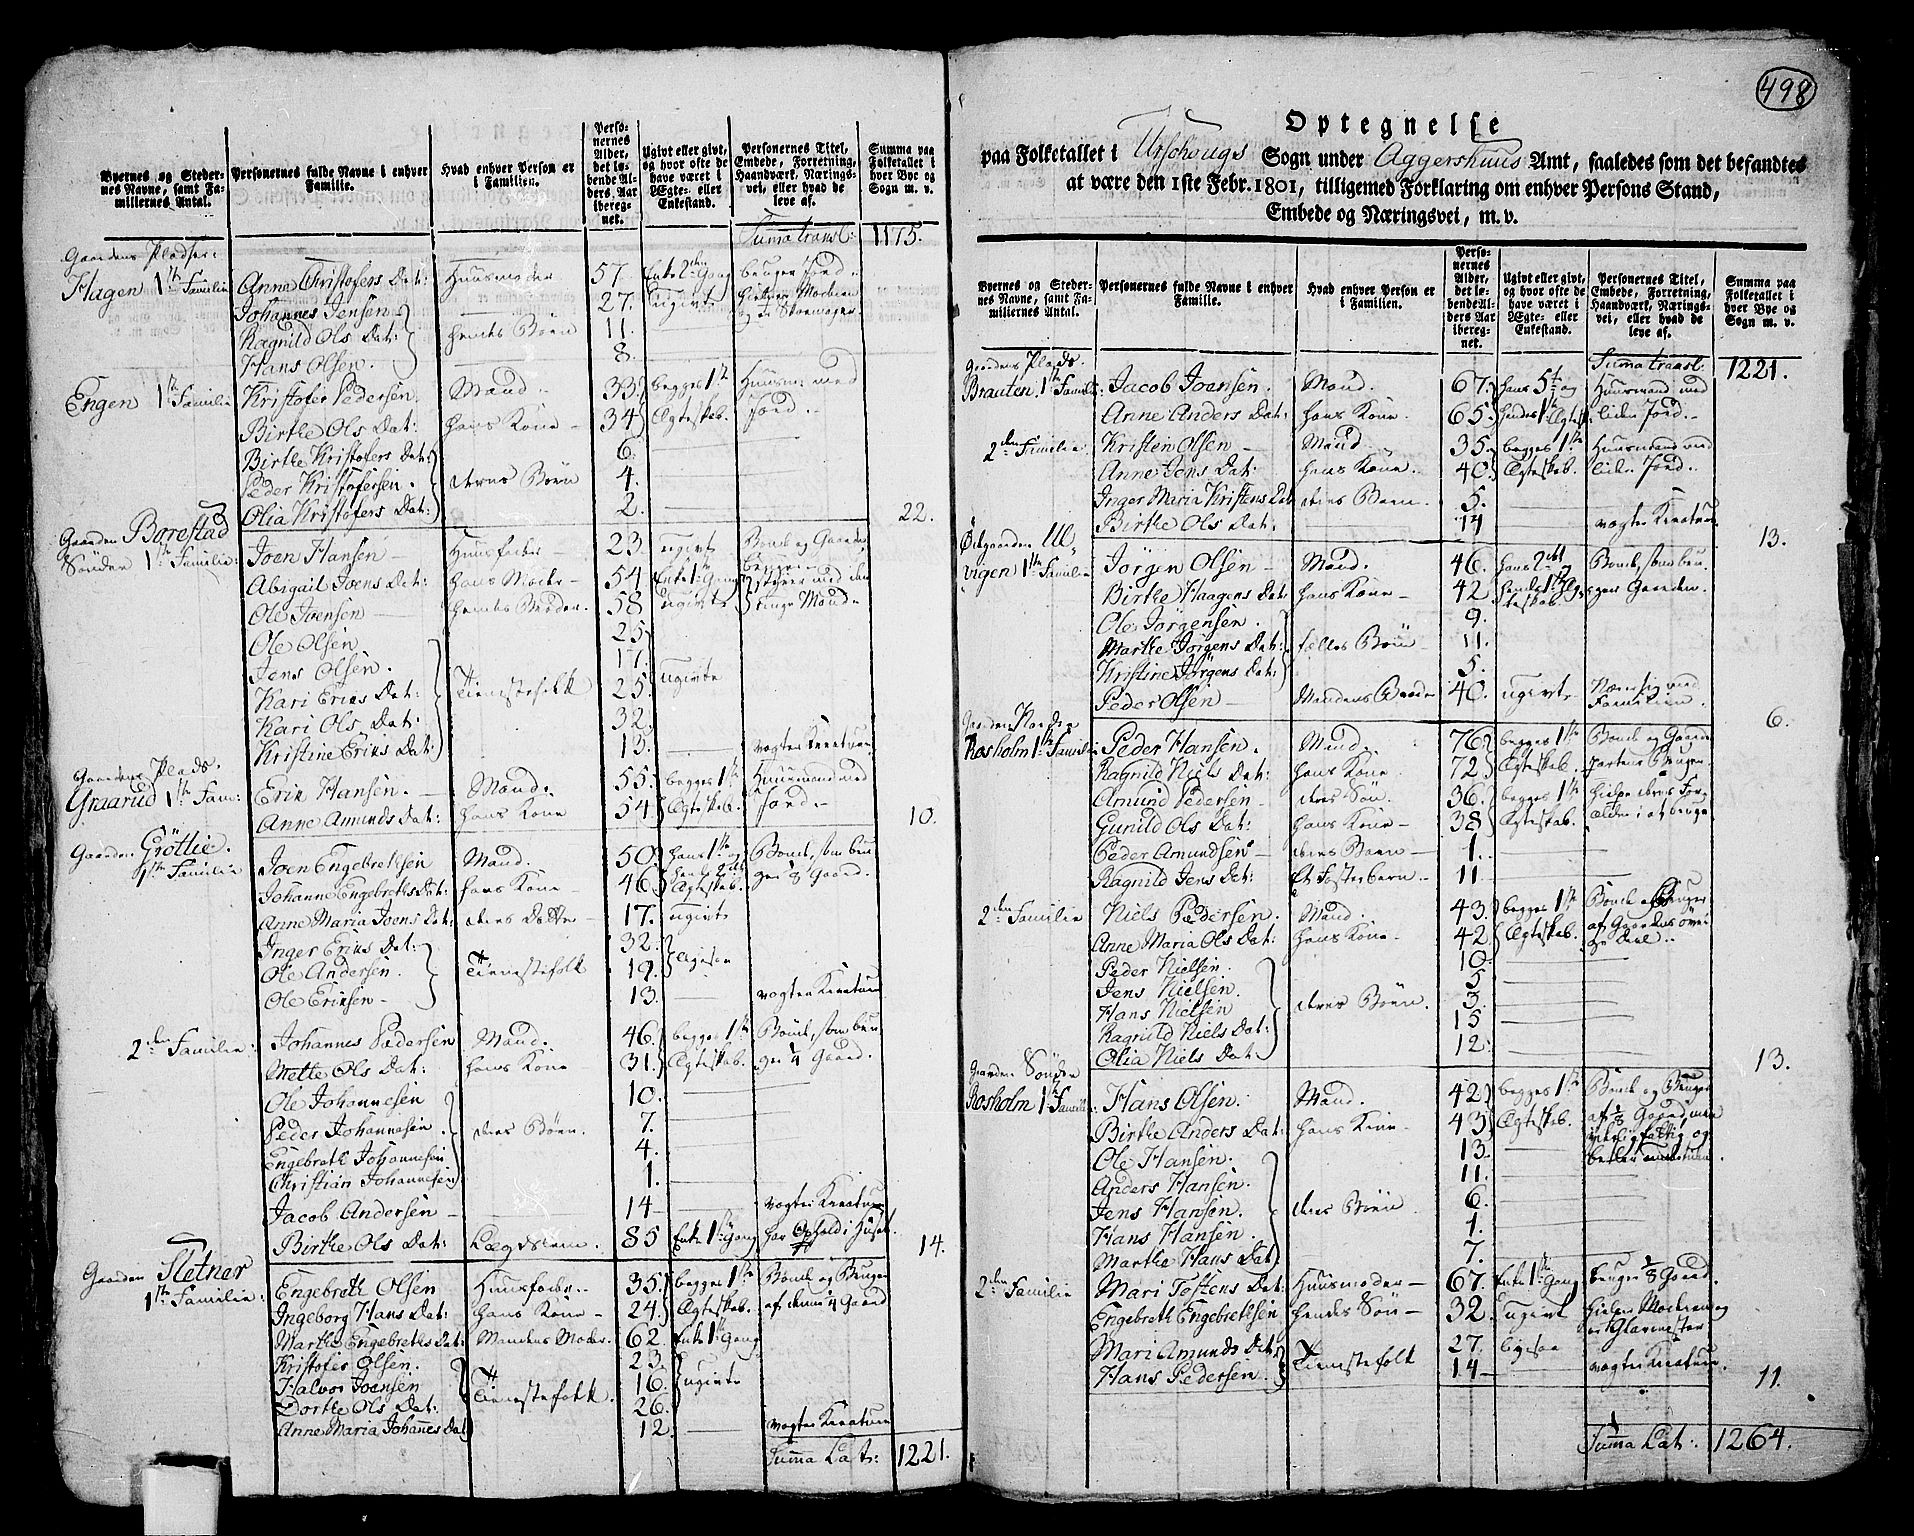 Byernes og Steder-
nes Navne, samt Fa-
millernes Antal.
Personernes fulde Navne i enhver
Familie.
Hvad enhver Person er
i Familien.
Perso-
nernes
Alder,
det lø-
bende Al-
ders Aar
ibereg-
net.
Ugivt eller givt,
og hvor ofte de
have været i
Ægte- eller
Enkestand.
Personernes Titel,
Embede, Forretning,
Haandværk, Nærings-
vei, eller hvad de
leve af.
Summa paa
Folketallet i
hver Bye og
Sogn m. v.
Suma transl: 1175.
Gaardens Pladser:
Hagen 1ste Familie Anne Christofers Dat: Huusmoder 57. Enke 2den Gang bruger Jord.
Johannes Jensen 27. Ugivte hielper Moderen
Ragnild Ols Dat: hendes Børn 11.
Hans Olsen. 8.
Engen 1ste Familie Kristofer Pedersen. Mand. 33. begges 1ste Huusm: med
Birthe Ols Dat: hans Kone 34 Ægteskab. Jord.
Birthe Kristofers Dat: 6.
Peder Kristofersen. deres Børn 4.
Olia Kristofers Dat: 2. 22.
Gaarden Borestad
Sønder 1ste Familie: Joen Hansen Huusfader 23. ugivt Bonde og Gaard
Abigail Joens Dat: hans Moder 54 Enke 1ste Gang
Ole Joensen 58 ugivte
Ole Olsen 25
Jens Olsen. 17.
Kari Erics Dat: Tienestefolk 25 ugivte
Kari Ols Dat: 32.
Kristine Erics Dat: 13. vogter Kreature
Gaardens Plads.
Graarud 1ste Fam: Erik Hansen. Mand. 55. begges 1ste Huusmand med
Anne Amunds Dat: hans Kone 54 Ægteskab. Jord. 10.
Gaarden Grøttie.
1ste Familie Joen Engebrethsen Mand. 50. hans 1ste og Bonde, som bru
Johanne Engebreths Dat: hans Kone 46 Ægteskab. ger 1/8 Gaard.
Anne Maria Joens Dat: deres Datter 17. ugivte
Inger Erics Dat: 32.
Ole Andersen. Tienestefolk 19.
Ole Ericsen 13. vogter Kreature
2den Familie: Johannes Pedersen Mand. 46. begges 1ste Bonde, som bru
Mette Ols Dat: hans Kone 31. Ægteskab. ger 1/4 Gaard.
Ole Johannesen 10.
Peder Johannesen. deres Børn. 7.
Engebreth Johannesen 4.
Christian Johannesen 1.
Jacob Andersen 14 vogter Kreature
Birthe Ols Dat: Lægdslem. 85 Enke 1ste Gang har Ophold i Huset. 14.
Gaarden Sletner
1ste Familie: Engebreth Olsen Huusfader. 35. begges 1ste Bonde og Bruger
Ingeborg Hans Dat: hans Kone 24 Ægteskab. af denne 1/4 Gaard
Marthe Engebreths Dat: Mandens Moder 62 Enke 1ste Gang
Kristofer Olsen. 23.
Halvor Joensen Tienestefolk. 16. ugivte
Dorthe Ols Dat: 26.
Anne Maria Johannes Dat: 12. vogter Kreature
Suma Lat: 1221.
498
Optegnelse
paa Folketallet i Urschougs Sogn under Aggershuus Amt, saaledes som det befandtes
at være den 1ste Febr. 1801, tilligemed Forklaring om enhver Persons Stand,
Embede og Næringsvei, m. v.
Byernes og Steder-
nes Navne, samt Fa-
miliernes Antal.
Personernes fulde Navne i enhver
Familie.
Hvad enhver Person er
i Familien.
Perso-
nernes
Alder,
det lø-
bende Al-
ders Aar
ibereg-
net.
Ugivt eller givt,
og hvor ofte de
have været i
Ægte- eller
Enkestand.
Personernes Titel,
Embede, Forretning,
Haandværk, Nærings-
vei, eller hvad de
leve af.
Summa paa
Folketallet i
hver Bye og
Sogn m. v.
Suma transl: 1221.
Gaardens Plads.
Brauten. 1ste Famil: Jacob Joensen. Mand. 67. hans 5t og Huusmand med
Anne Anders Dat: hans Kone 65. hendes 1ste Ægtesk: liden Jord.
2den Familie Kristen Olsen Mand 35. begges 1ste Huusmand med
Anne Jens Dat: hans Kone. 40. Ægteskab. liden Jord.
Inger Maria Kristens Dat deres Barn. 5.
Birthe Ols Dat: 14 vogter Kreature 13.
Ødegaarden Ul-
vigen 1ste Familie Jørgen Olsen Mand. 46. hans 2det og Bonde, som bru-
Birthe Haagens Dat: hans Kone 42 hendes 1ste Æg- ger Gaarden.
teskab.
Ole Jørgensen. 9.
Marthe Jørgens Dat: fælles Børn 11.
Kristine Jørgens Dat: 5.
Peder Olsen Mandens Broder 40. ugivte Familien. 6.
Gaarden Nordre
Rosholm 1ste Familie Peder Hansen. Mand. 76. begges 1ste Bonde og Gaard
Ragnild Niels Dat: hans Kone. 72. Ægteskab. partens Bruger.
Amund Pedersen deres Søn. 36. begges 1ste hielper deres For-
Gunild Ols Dat: hans Kone 38. Ægteskab. ældre i at bruge
Peder Amundsen deres Barn 1.
Ragnild Jens Dat: Et Fosterbarn. 11.
2den Familie Niels Pedersen. Mand. 43. begges 1ste Bonde og Bruger
Anne Maria Ols Dat: hans Kone 42 Ægteskab. af Gaardens øvri
ge Deel.
Peder Nielsen. 10.
Jens Nielsen. 5
Hans Nielsen deres Børn. 3.
Ragnild Niels Dat: 15
Olia Niels Dat: 12. 13.
Gaarden Sønder
Rosholm 1ste Familie: Hans Olsen. Mand. 42 begges 1ste Bonde og Bruger
Birthe Anders Dat: hans Kone 43 Ægteskab. af 1/8 Gaard, men
Ole Hansen. 13.
Anders Hansen. 11.
Jens Hansen. deres Børn 6.
Hans Hansen. 1.
Marthe Hans Dat. 7.
2den Familie Mari Tostens Dat: Huusmoder 67. Enke 1ste Gang bruger 1/8 Gaard
Engebreth Engebrethsen hendes Søn 32. ugivt hielper Moderen og
er Glarmester
Mari Amunds Dat: Tienestefolk 27.
Hans Pedersen. 14 vogter Kreature. 11.
Suma Lat: 1264.